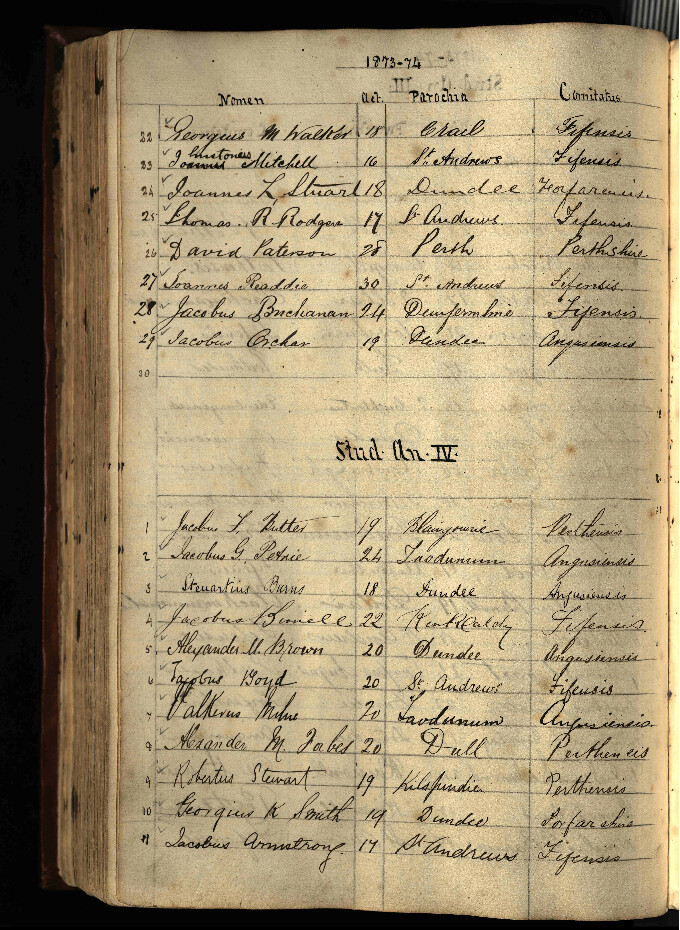 1873-74
Nomen Aet. Parochia Comitatus
22 Georgius M Walker 18 Crail Fifensis
23 Mitchell 16 St. Andrews Fifensis
24 Joannes L. Stuart 18 Dundee Forfarensis.
25 Thomas. R. Rodger 17 St Andrews. Fifensis
26 David Paterson 28 Perth Perthshire
27 Joannes Readdie 30 St Andrews Fifensis
28 Jacobus Buchanan 24 Dunfermline Fifensis.
29 Jacobus Orchar 19 Dundee Angusiensis
30
Stud. An. IV.
1 Jacobus F. Butter 19 Blairgowrie Perthensis
2 Jacobus G. Petrie 24 Taodunum Angusiensis
3 Steuartius Burns 18 Dundee Angusiensis
4 Jacobus 22 Kirkcaldy Fifensis.
5 Alexander M. Brown 20 Dundee Angusiensis
6 Jacobus Boyd 20 St. Andrews Fifensis
7 Valkerus Milne 20 Taodunum Angusiensis.
8 Alexander M. Forbes 20 Dull Perthencis
9 Robertus Stewart 19 Kilspindie Perthensis
10 Georgius K Smith 19 Dundee Forfarshire
11 Jacobus Armstrong. 17 St Andrews Fifensis